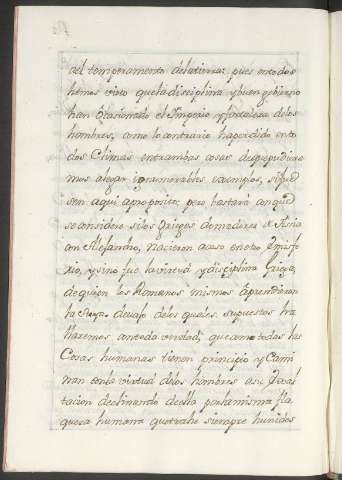 del temperamento dela tierra: pues en todos
hemos visto que la disciplina y buen gobierno
han ocasionado el Imperio y fortaleza de los
hombres, como lo contrario ha perdido en to
dos Climas entrambas cosas de que pudiera
mos alegar innumerables exemplos, si fue
sen aqui aproposito: pero bastará conque
se considere si los Griegos domadores de Asia
con Alexandro, nacieron acaso en otro Emisfe
rio, y sino fue la virtud y disciplina Griega,
de quien los Romanos mismos aprendieron
la suya: de uso delos quales supuestos ha
llaremos con toda verdad, que como todas las
Cosas humanas tienen principio y Cami
nan con la virtud delos hombres asu Exal
tacion declinando de ella por la misma fla
queza humana que trahe siempre hunidos